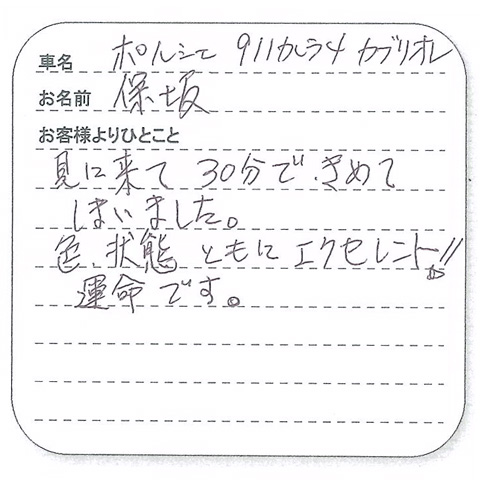 車名 ポルシェ 911カレラ4 カブリオレ
お名前 保坂
お客様よりひとこと
見に来て 30分で.きめて
しまいました。
色、状態 ともに エクセレント!!
運命です。